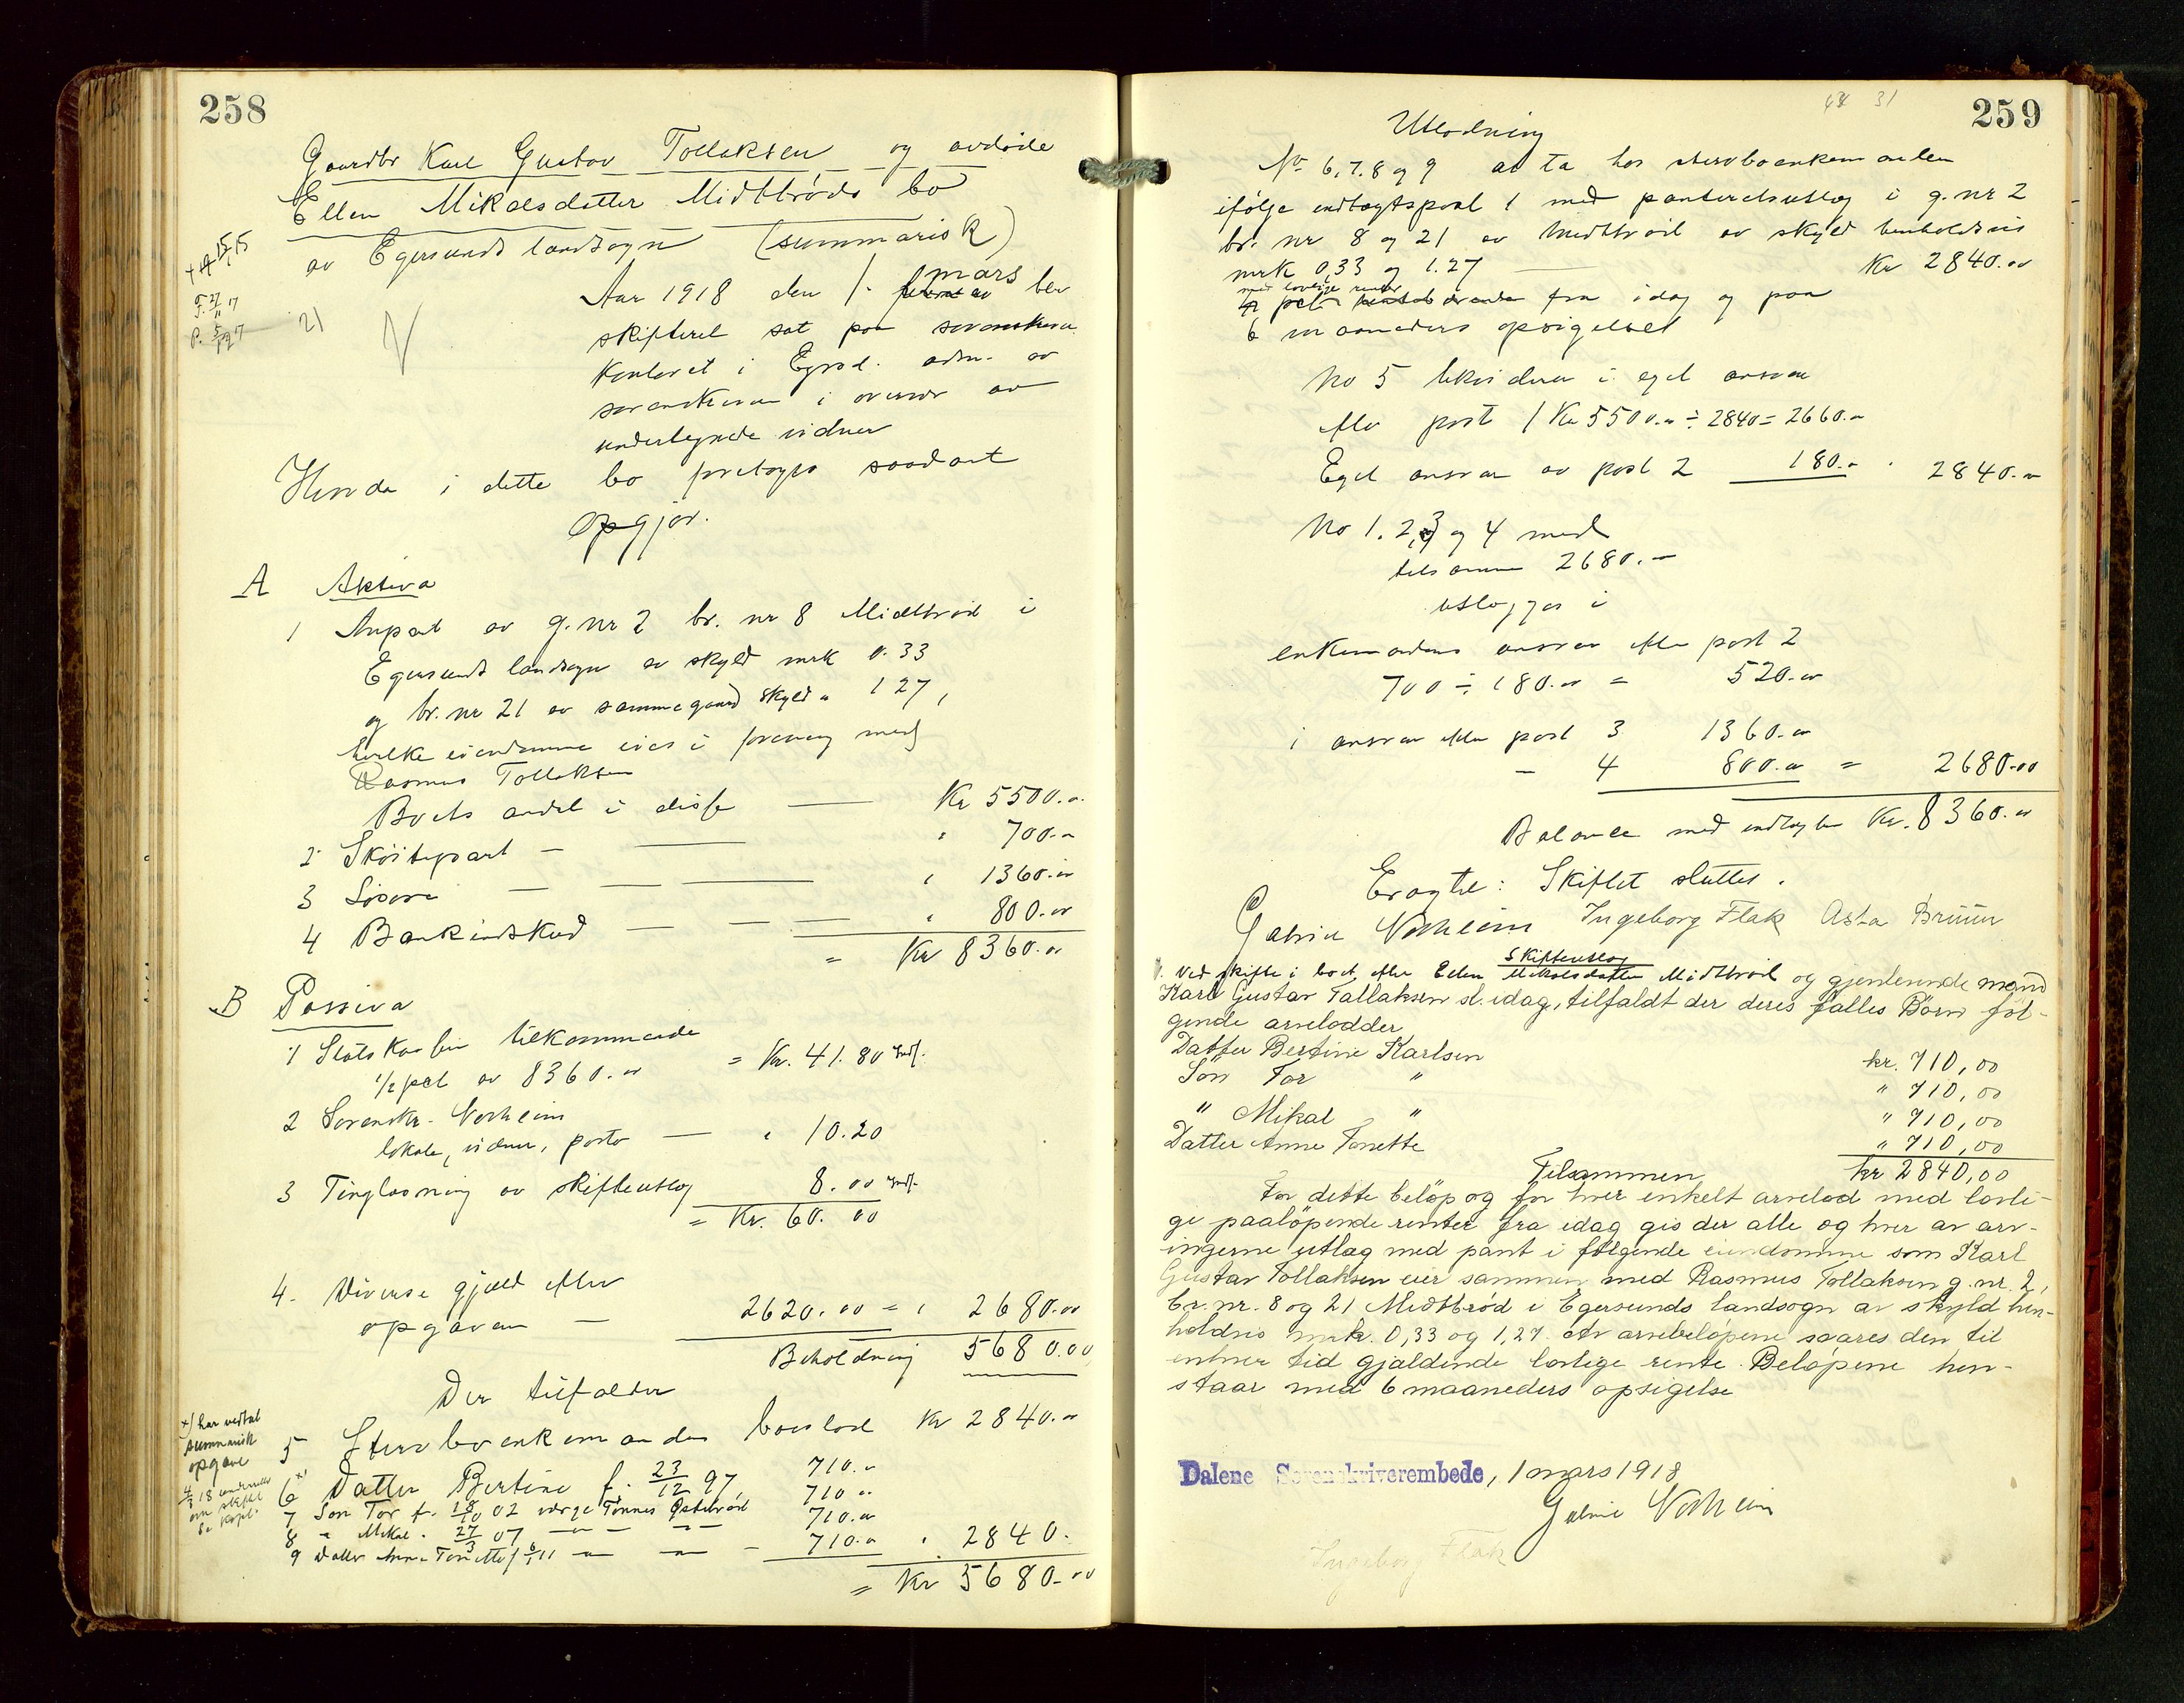 258
Gaardbr Karl Gustav Tollaksen og avdøde
Ellen Mikalsdatter Midtbrøds bo
av Egersunds landsogn (summarisk)
21
Aar 1918 den 1. mars blev
skifteret sat paa sorenskriver
kontoret i Egrsd. adm. av
sorenskriveren i overvær av
undertegnede vidner
Herunder i dette bo foretages saadant
opgjør.
A Aktiva
1 Anpart av g. nr 2 br. nr 8 Midtbrød i
Egersunds landsogn av skyld mrk 0.33
og br. nr 21 av samme gaard skyld " 1 27,
hvilke eiendomme eies i forening med
Rasmus Tollaksen
Boets andel i disse — Kr 5500.00
2 Skøitepart — — " 700.00
3 Løsøre — — — " 1360.00
4 Bankindskud — — — " 800.00
= Kr 8360.00
B Passiva
1 Statskassen tilkommende
1/2 pct av 8360.00 = Kr. 41.80
2 Sorenskr. Norheim
lokale, vidner, porto — " 10.20
3 Tinglæsning av skifteutlog 8.00
= Kr. 60.00
4. Diverse gjæld efter
opgaven — 2620.00 = " 2680.00
Beholdning 5680.00
Der tilfalder
x) har vedtat
summarisk
opgave
5 Stervboenkemanden boeslod Kr 2840.00
6 x) Datter Bertine f. 23/12 97 710.00
7 Søn Tor f. 18/10 02 værge Tønnes Østebrød 710.00
8 " Mikal " 27/3 07 — " — — " — 710.00
9 Datter Anne Tonette f 6/1 11 — " — — " — 710.00 " 2840.
= Kr 5680.00
259
31
Utlodning
No 6, 7. 8 og 9 at ta hos stervboenkemanden
ifølge indtægtspost 1 med panteretsutlæg i g. nr 2
br. nr 8 og 21 av Midtbrød av skyld henholdsvis
mrk 0,33 og 1.27 — Kr 2840.00
med lovlige renter
fra idag og paa
6 maaneders opsigelse
No 5 likviderer i eget ansvar
efter post 1 Kr 5500.00 ÷ 2840 = 2660.00
Eget ansvar av post 2 180.00 " 2840.00
No 1. 2, 3 og 4 med
tilsammen 2680.—
utlægges i
enkemandens ansvar efter post 2
700 ÷ 180.00 = 520.00
i ansvar efter post 3 1360.00
— 4 800.00 = 2680.00
Balance med indtægten Kr. 8360.00
Eragtet: Skiftet sluttet.
Gabriel Norheim Ingeborg Flak Asta Brüün
Skifteutlog
Ved skifte i boet efter Ellen Mikalsdatter Midtbrød og gjenlevende mand
Karl Gustav Tallaksen sl. idag, tilfaldt der deres fælles Børn føl-
gende arvelodder
Datter Bertine Karlsen kr. 710,00
Søn Tor " " 710,00
" Mikal " " 710,00
Datter Anne Tonette " 710,00
Tilsammen kr 2840,00
For dette beløp og for hver enkelt arvelod med lovli-
ge paaløpende renter fra idag gis der alle og hver av arv-
ingerne utlæg med pant i følgende eiendomme som Karl
Gustav Tollaksen eier sammen med Rasmus Tollaksen g. nr. 2,
br. nr. 8 og 21 Midtbrød i Egersunds landsogn av skyld hen-
holdsvis mrk. 0,33 og 1,27. Av arvebeløpene svares den til
enhver tid gjældende lovlige rente. Beløpene hen-
staar med 6 maaneders opsigelse
Dalene Sorenskriverembede, 1 mars 1918
Gabriel Norheim
Ingeborg Flak